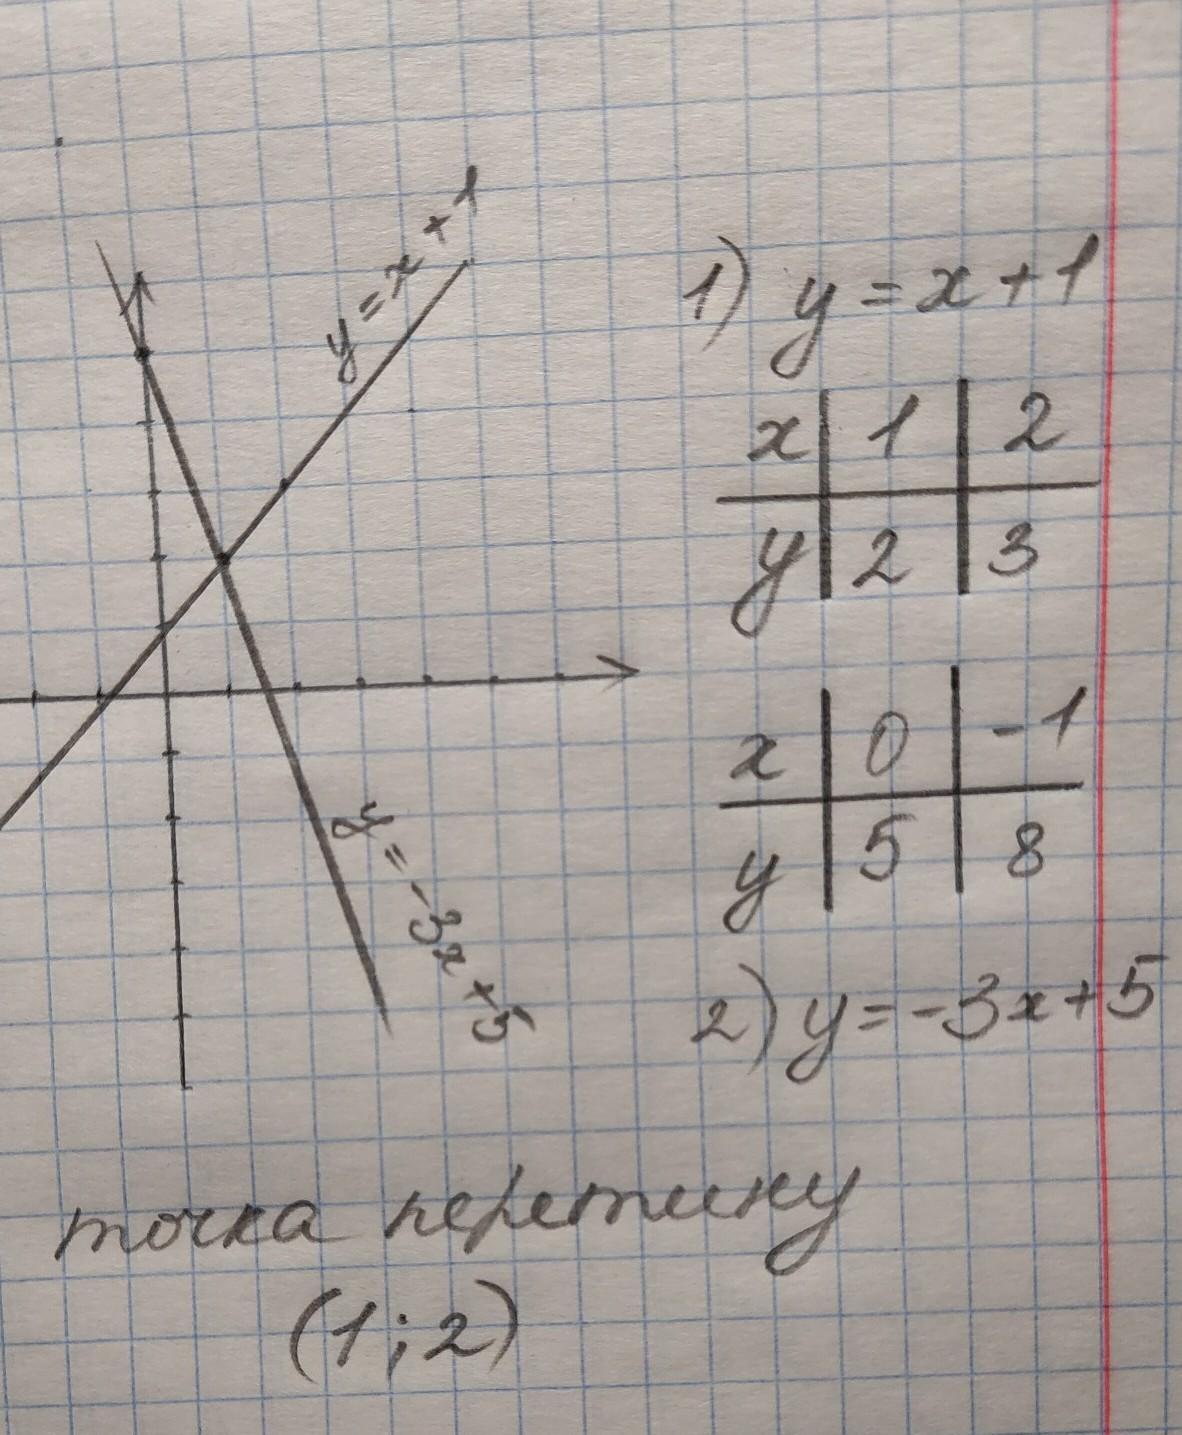 y = x + 1
1) y = x + 1
x | 1 | 2
y | 2 | 3
x | 0 | -1
y | 5 | 8
y = -3x + 5
2) y = -3x + 5
точка перетину
(1; 2)